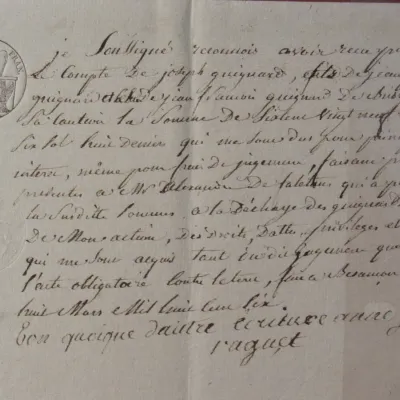 je Soussigné reconnois avoir recu p
Le Compte de joseph guignard, et fils de jean
guignard de jean francois guignard de
Sa Caution la Somme de vingt neuf
Six sol huit denier qui me sont dus pour
interet, même pour frais de jugement, faisant
presentes a Mr Alexandre De qui a
la Susditte Somme a la Décharge des guignard
De Mon action, Des Droits, privileges et
qui me sont acquis tant du dit jugement que
l'acte obligatoire Contre le tiers, fait a Besancon
huit Mars Mil huit Cent Six.
Bon quoique d'autre écriture anne
raguet